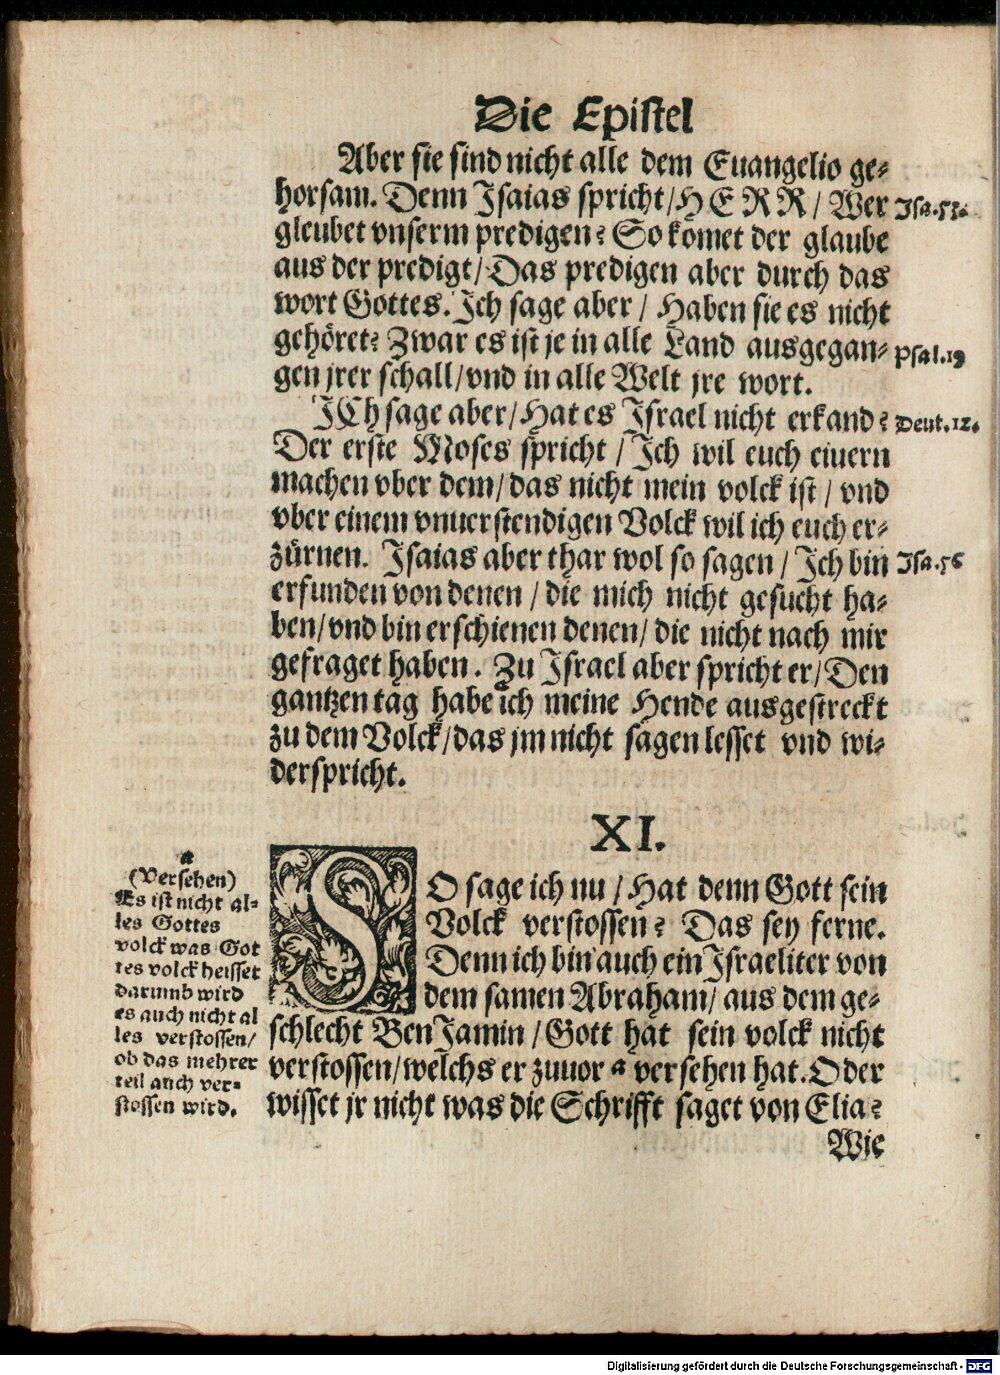 Die Epistel
Aber sie sind nicht alle dem Euangelio ge-
horsam. Denn Isaias spricht/HERR/Wer
Isa.53.
gleubet vnserm predigen? So kömet der glaube
aus der predigt/Das predigen aber durch das
wort Gottes. Ich sage aber/Haben sie es nicht
gehöret? Zwar es ist je in alle Land ausgegan-
Psal.19
gen jrer schall/vnd in alle Welt jre wort.
ICh sage aber/Hat es Israel nicht erkand?
Deut.12.
Der erste Moses spricht/Ich wil euch eiuern
machen vber dem/das nicht mein volck ist/vnd
vber einem vnuerstendigen Volck wil ich euch er-
zürnen. Isaias aber thar wol so sagen/Ich bin
Isa.56
erfunden von denen/die mich nicht gesucht ha-
ben/vnd bin erschienen denen/die nicht nach mir
gefraget haben. Zu Israel aber spricht er/Den
gantzen tag habe ich meine Hende ausgestreckt
zu dem Volck/das jm nicht sagen lesset vnd wi-
derspricht.
XI.
SO sage ich nu/Hat denn Gott sein
Volck verstossen? Das sey ferne.
Denn ich bin auch ein Israeliter von
dem samen Abraham/aus dem ge-
schlecht BenJamin/Gott hat sein volck nicht
verstossen/welchs er zuuor a versehen hat. Oder
wisset jr nicht was die Schrifft saget von Elia?
Wie
a
(Versehen)
Es ist nicht al-
les Gottes
volck was Got
tes volck heisset
darumb wird
es auch nicht al
les verstossen/
ob das mehrer
teil auch ver-
stossen wird.
Digitalisierung gefördert durch die Deutsche Forschungsgemeinschaft - DFG